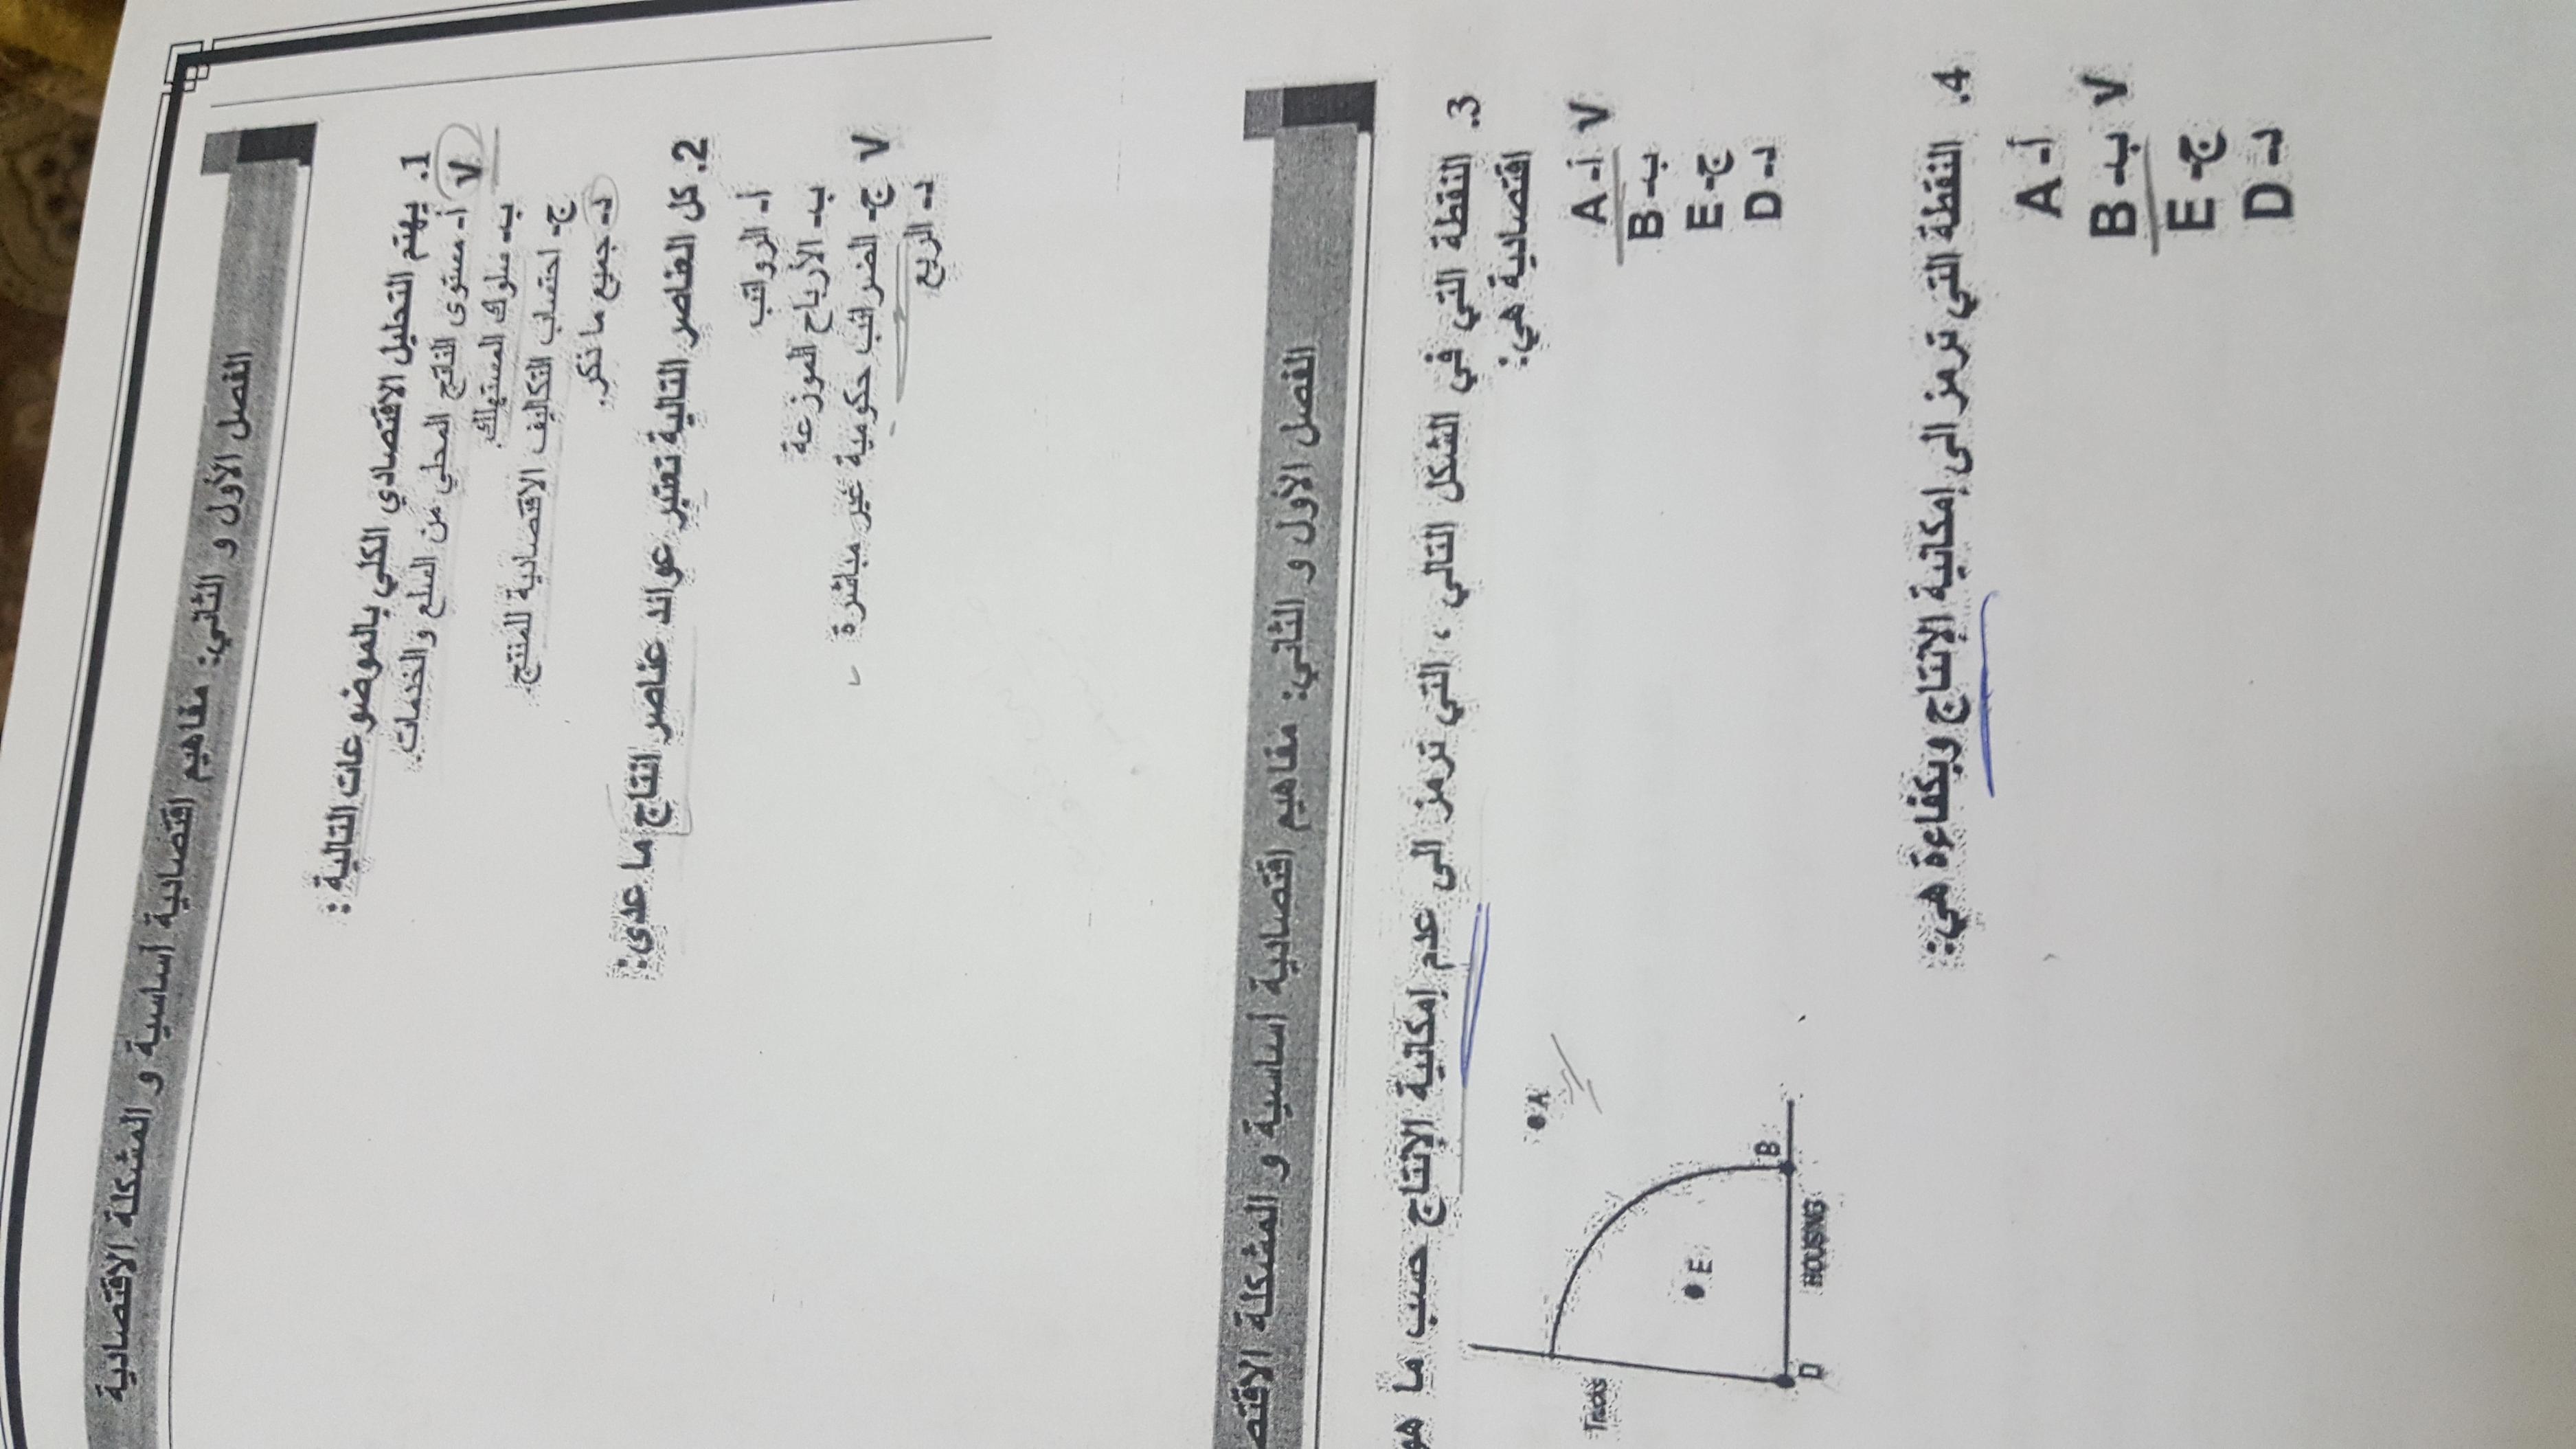 الفصل الأول و الثاني: مفاهيم اقتصادية أساسية و المشكلة الاقتصادية
1. يهتم التحليل الاقتصادي الكلي بالموضوعات التالية :
أ- مستوى الناتج المحلي من السلع والخدمات. √
ب- سلوك المستهلك.
ج- احتساب التكاليف الاقتصادية للمنتج.
د- جميع ما ذكر.
2. كل العناصر التالية تعتبر عوائد عناصر انتاج ما عدى:
أ- الرواتب
ب- الأرباح الموزعة
ج- الضرائب حكومية غير مباشرة √
د- الريع
الفصل الأول و الثاني: مفاهيم اقتصادية أساسية و المشكلة
3. النقطة التي في الشكل التالي ، التي ترمز الى عدم إمكانية الإنتاج حسب ما
اقتصادية هي:
أ- A √
ب- B
ج- E
د- D
A
B
E
D
HOUSING
4. النقطة التي ترمز الى إمكانية الإنتاج وبكفاءة هي:
أ- A
ب- B √
ج- E
د- D